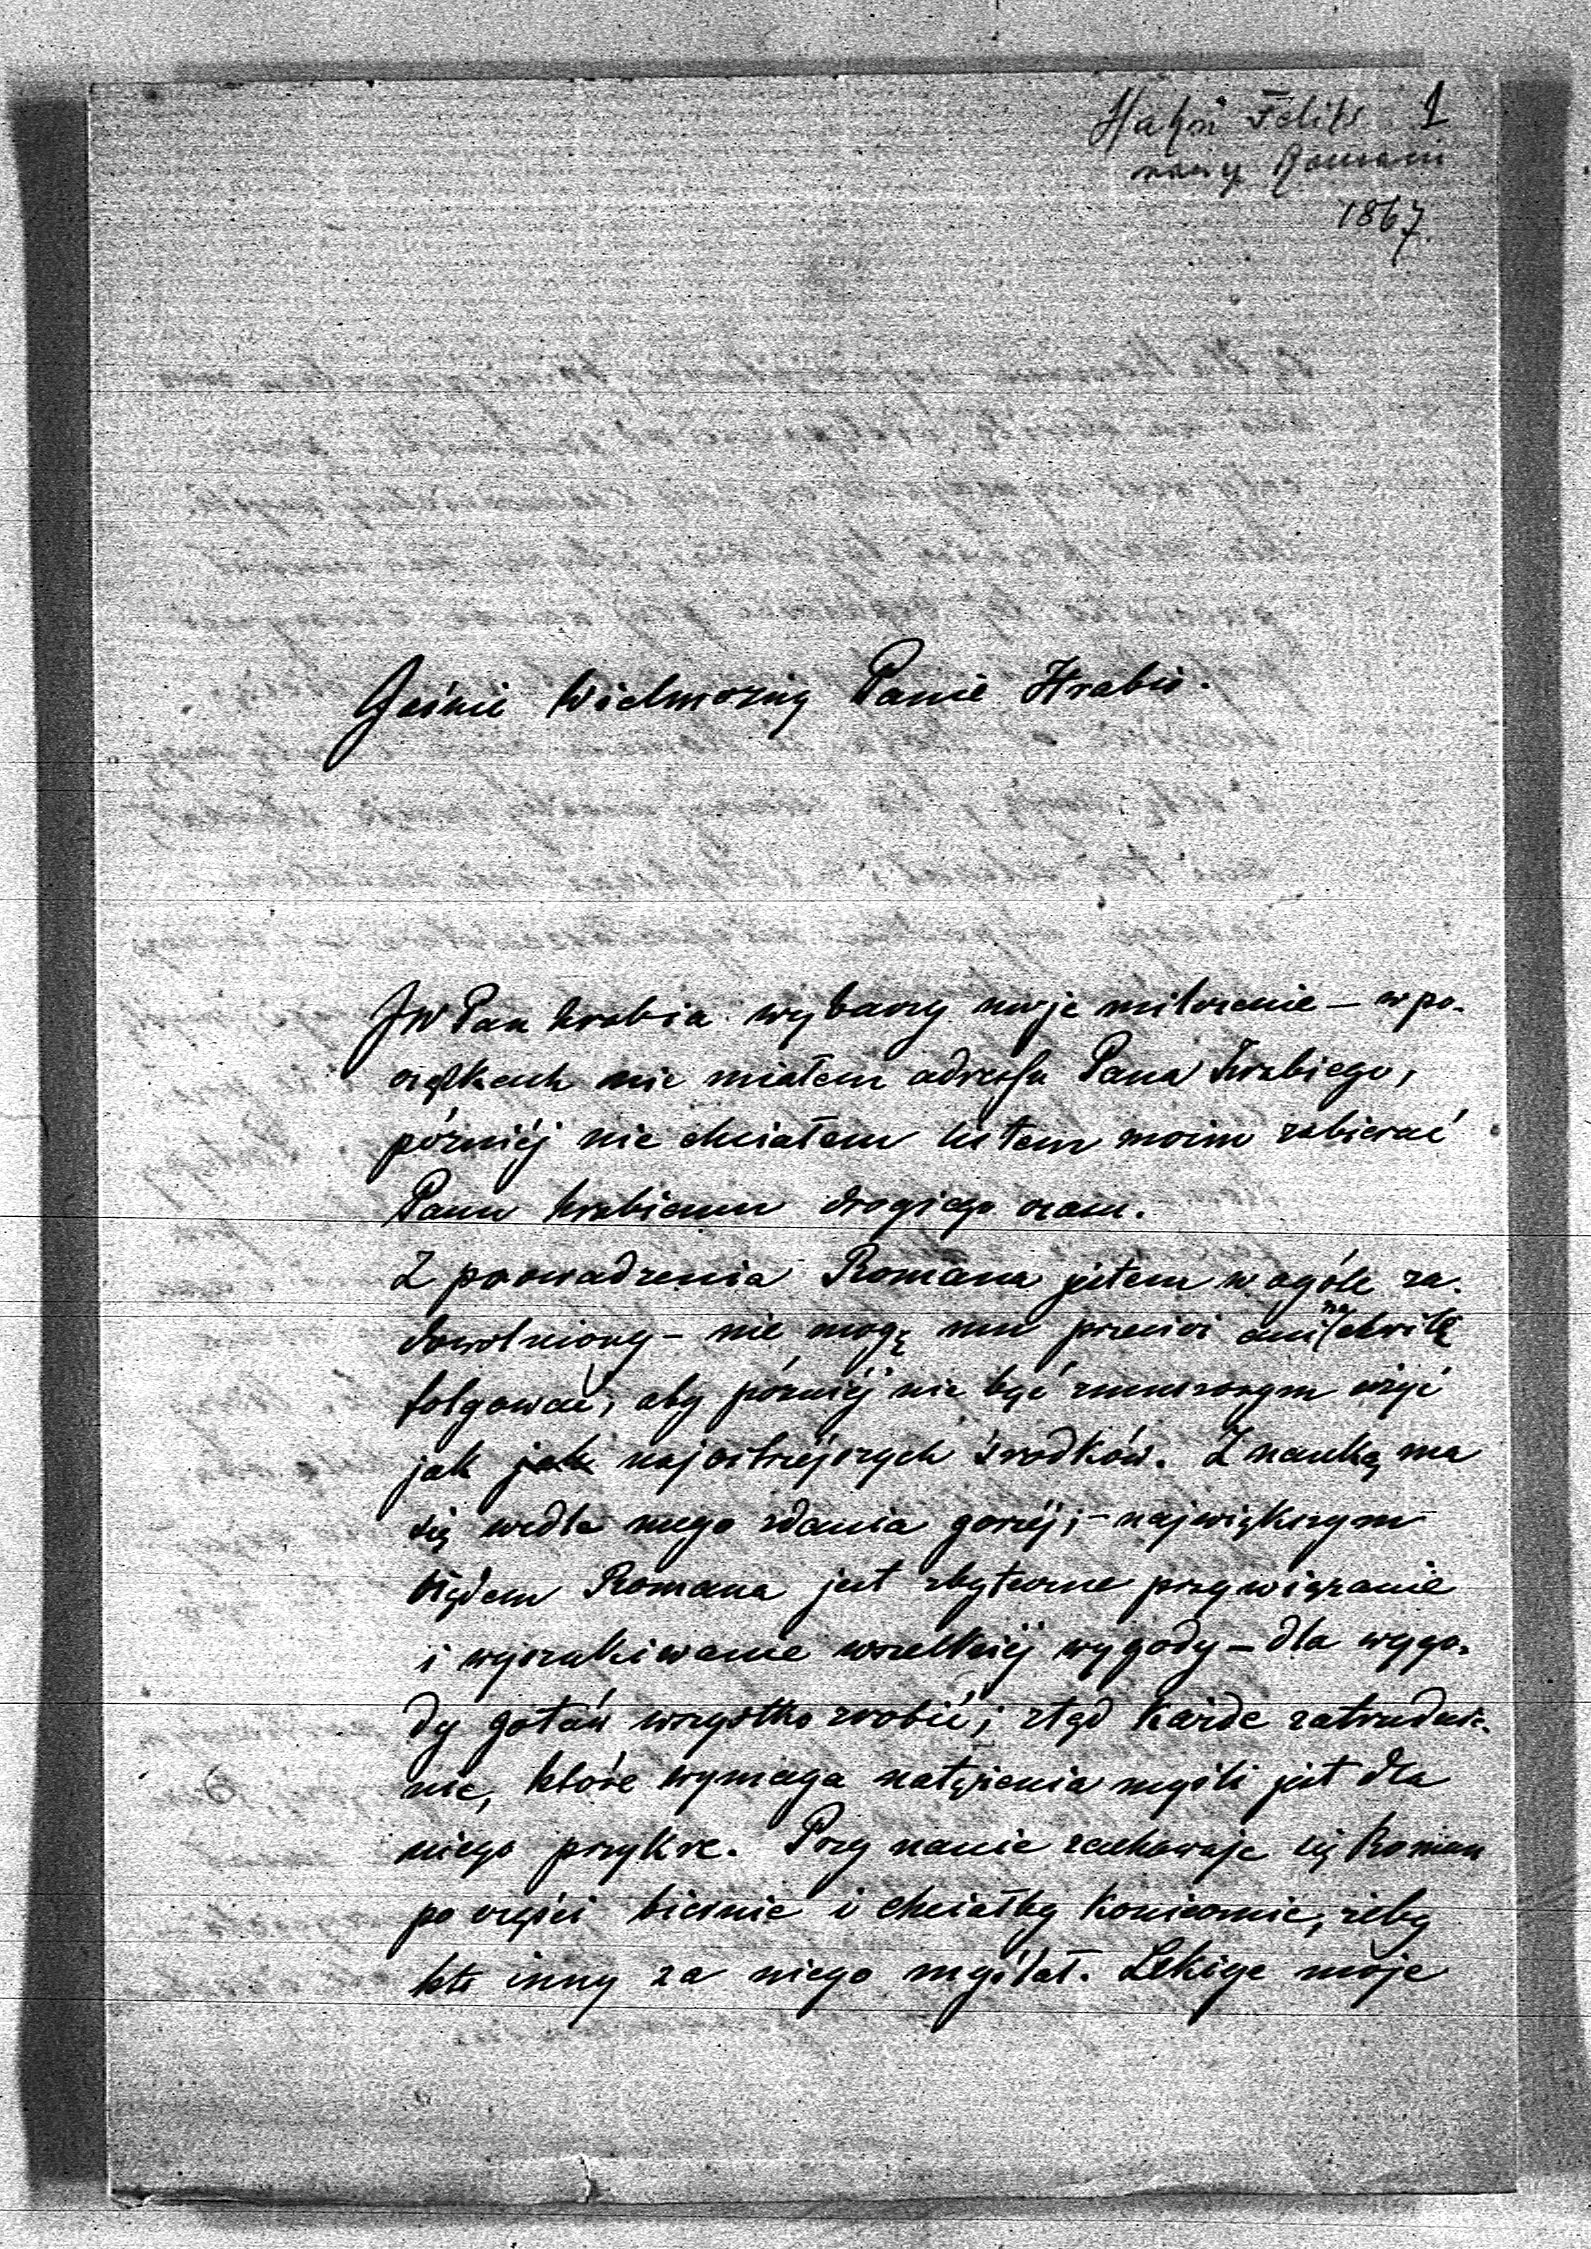 Hahn Feliks 1
naucz. Romana
1867
Jaśnie Wielmożny Panie Hrabio.
JW Pan hrabia wybaczy moje milczenie – w po-
czątkach nie miałem adressu Pana Hrabiego,
późniéj nie chciałem listem moim zabierać
Panu hrabiemu drogiego czasu.
Z prowadzenia Romana jestem w ogóle za-
dowolniony – nie mogę mu przecież ani na chwilę
folgować, aby późniéj nie być zmuszonym użyć
jak jak najostrzejszych środków. Z nauką ma
się wedle mego zdania gorzéj; – największym
błędem Romana jest zbyteczne przywiązanie
i wyszukiwanie wszelkiéj wygody – dla wygo-
dy gotów wszystko zrobić; ztąd każde zatrudnie-
nie, które wymaga natężenia myśli jest dla
niego przykre. Przy nauce zachowuje się Roman
po części biernie i chciałby koniecznie, żeby
kto inny za niego myślał. Lekcye moje